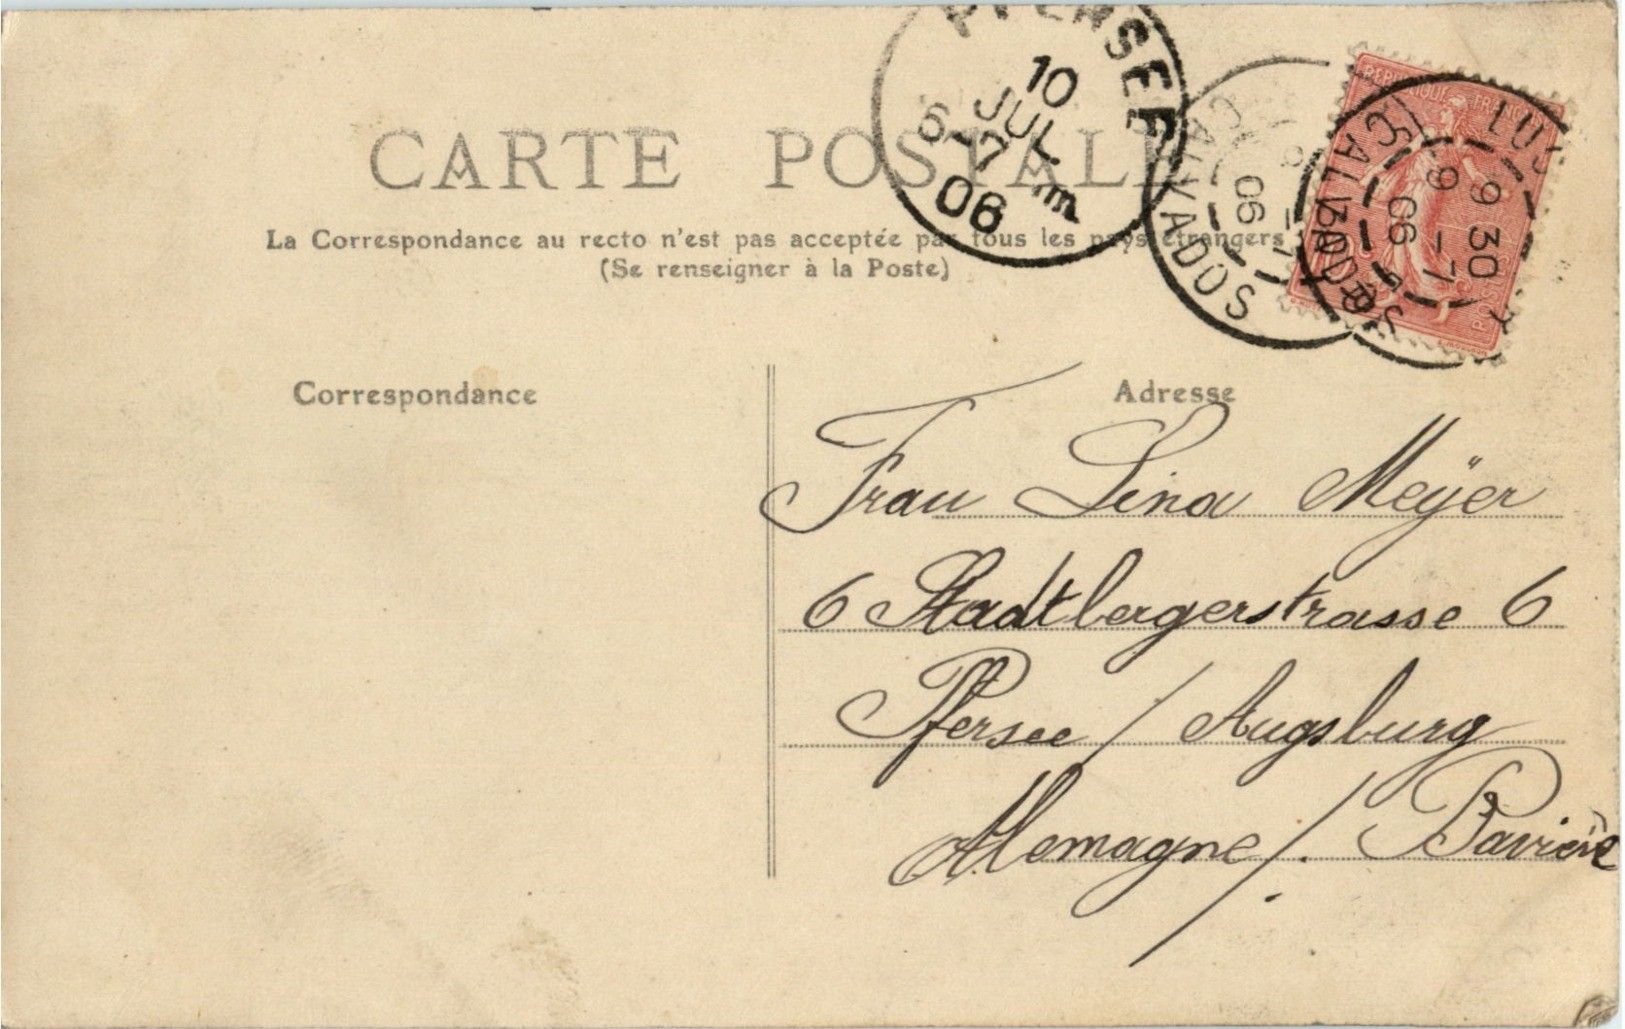 PFERSEE
10
JUL
6-7 Nm
06
CARTE POSTALE
La Correspondance au recto n'est pas acceptée par tous les pays étrangers
(Se renseigner à la Poste)
REPUBLIQUE FRANÇAISE
CALVADOS
9 30
9 -7
06
CALVADOS
06
Correspondance
Adresse
Frau Lina Meÿer
6 Stadtbergerstrasse 6
Pfersee / Augsburg
Allemagne /. Bavière